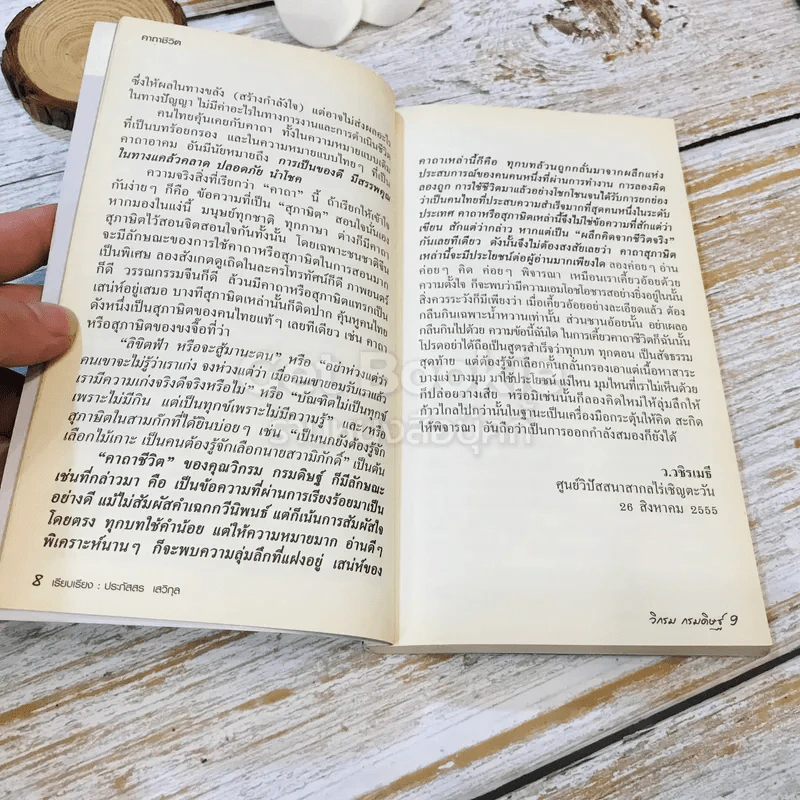 คาถาชีวิต
ซึ่งให้ผลในทางขลัง (สร้างกำลังใจ) แต่อาจไม่ส่งผลอะไร
ในทางปัญญา ไม่มีค่าอะไรในทางการงานและการดำเนินชีวิต
คนไทยคุ้นเคยกับคาถา ทั้งในความหมายแบบเดิม
ที่เป็นบทร้อยกรอง และในความหมายแบบไทยๆ ที่เป็น
คาถาอาคม อันมีนัยหมายถึง การเป็นของดี มีสรรพคุณ
ในทางแคล้วคลาด ปลอดภัย นำโชค
ความจริงสิ่งที่เรียกว่า “คาถา” นี้ ถ้าเรียกให้เข้าใจ
กันง่ายๆ ก็คือ ข้อความที่เป็น “สุภาษิต” สอนใจนั่นเอง
หากมองในแง่นี้ มนุษย์ทุกชาติ ทุกภาษา ต่างก็มีคาถา
สุภาษิตไว้สอนจิตสอนใจกันทั้งนั้น โดยเฉพาะชนชาติจีน
จะมีลักษณะของการใช้คาถาหรือสุภาษิตในการสอนมาก
เป็นพิเศษ ลองสังเกตดูเถิดในละครโทรทัศน์ก็ดี ภาพยนตร์
ก็ดี วรรณกรรมจีนก็ดี ล้วนมีคาถาหรือสุภาษิตแทรกเป็น
เสน่ห์อยู่เสมอ บางทีสุภาษิตเหล่านั้นก็ติดปาก คุ้นหูคนไทย
ดังหนึ่งเป็นสุภาษิตของคนไทยแท้ๆ เลยทีเดียว เช่น คาถา
หรือสุภาษิตของขงจื๊อที่ว่า
“ลิขิตฟ้า หรือจะสู้มานะตน” หรือ “อย่าห่วงแต่ว่า
คนเขาจะไม่รู้ว่าเราเก่ง จงห่วงแต่ว่า เมื่อคนเขายอมรับเราแล้ว
เรามีความเก่งจริงดีจริงหรือไม่” หรือ “บัณฑิตไม่เป็นทุกข์
เพราะไม่มีกิน แต่เป็นทุกข์เพราะไม่มีความรู้” และ/หรือ
สุภาษิตในสามก๊กที่ได้ยินบ่อยๆ เช่น “เป็นนกยังต้องรู้จัก
เลือกไม้เกาะ เป็นคนต้องรู้จักเลือกนายสวามิภักดิ์” เป็นต้น
“คาถาชีวิต” ของคุณวิกรม กรมดิษฐ์ ก็มีลักษณะ
เช่นที่กล่าวมา คือ เป็นข้อความที่ผ่านการเรียงร้อยมาเป็น
อย่างดี แม้ไม่สัมผัสคำเฉกกวีนิพนธ์ แต่ก็เน้นการสัมผัสใจ
โดยตรง ทุกบทใช้คำน้อย แต่ให้ความหมายมาก อ่านดีๆ
พิเคราะห์นานๆ ก็จะพบความลุ่มลึกที่แฝงอยู่ เสน่ห์ของ
8 เรียบเรียง : ประภัสสร เสวิกุล
คาถาเหล่านี้ก็คือ ทุกบทล้วนถูกกลั่นมาจากผลึกแห่ง
ประสบการณ์ของคนคนหนึ่งที่ผ่านการทำงาน การลองผิด
ลองถูก การใช้ชีวิตมาแล้วอย่างโชกโชนจนได้รับการยกย่อง
ว่าเป็นคนไทยที่ประสบความสำเร็จมากที่สุดคนหนึ่งในระดับ
ประเทศ คาถาหรือสุภาษิตเหล่านี้จึงไม่ใช่ข้อความที่สักแต่ว่า
เขียน สักแต่ว่ากล่าว หากแต่เป็น “ผลึกคิดจากชีวิตจริง”
กันเลยทีเดียว ดังนั้นจึงไม่ต้องสงสัยเลยว่า คาถาสุภาษิต
เหล่านี้จะมีประโยชน์ต่อผู้อ่านมากเพียงใด ลองค่อยๆ อ่าน
ค่อยๆ คิด ค่อยๆ พิจารณา เหมือนเราเคี้ยวอ้อยด้วย
ความตั้งใจ ก็จะพบว่ามีความเอมโอชโอชารสอย่างยิ่งอยู่ในนั้น
สิ่งควรระวังก็มีเพียงว่า เมื่อเคี้ยวอ้อยอย่างละเอียดแล้ว ต้อง
กลืนกินเฉพาะน้ำหวานเท่านั้น ส่วนชานอ้อยนั้น อย่าเผลอ
กลืนกินไปด้วย ความข้อนี้ฉันใด ในการเคี้ยวคาถาชีวิตก็ฉันนั้น
โปรดอย่าได้ถือเป็นสูตรสำเร็จว่าทุกบท ทุกตอน เป็นสัจธรรม
สุดท้าย แต่ต้องรู้จักเลือกคั้นกลั่นกรองเอาแต่เนื้อหาสาระ
บางแง่ บางมุม มาใช้ประโยชน์ แง่ไหน มุมไหนที่เราไม่เห็นด้วย
ก็ปล่อยวางเสีย หรือมิเช่นนั้นก็ลองคิดใหม่ให้ลุ่มลึกให้
ก้าวไกลไปกว่านั้นในฐานะเป็นเครื่องมือกระตุ้นให้คิด สะกิด
ให้พิจารณา อันถือว่าเป็นการออกกำลังสมองก็ยังได้
ว.วชิรเมธี
ศูนย์วิปัสสนาสากลไร่เชิญตะวัน
26 สิงหาคม 2555
วิกรม กรมดิษฐ์ 9